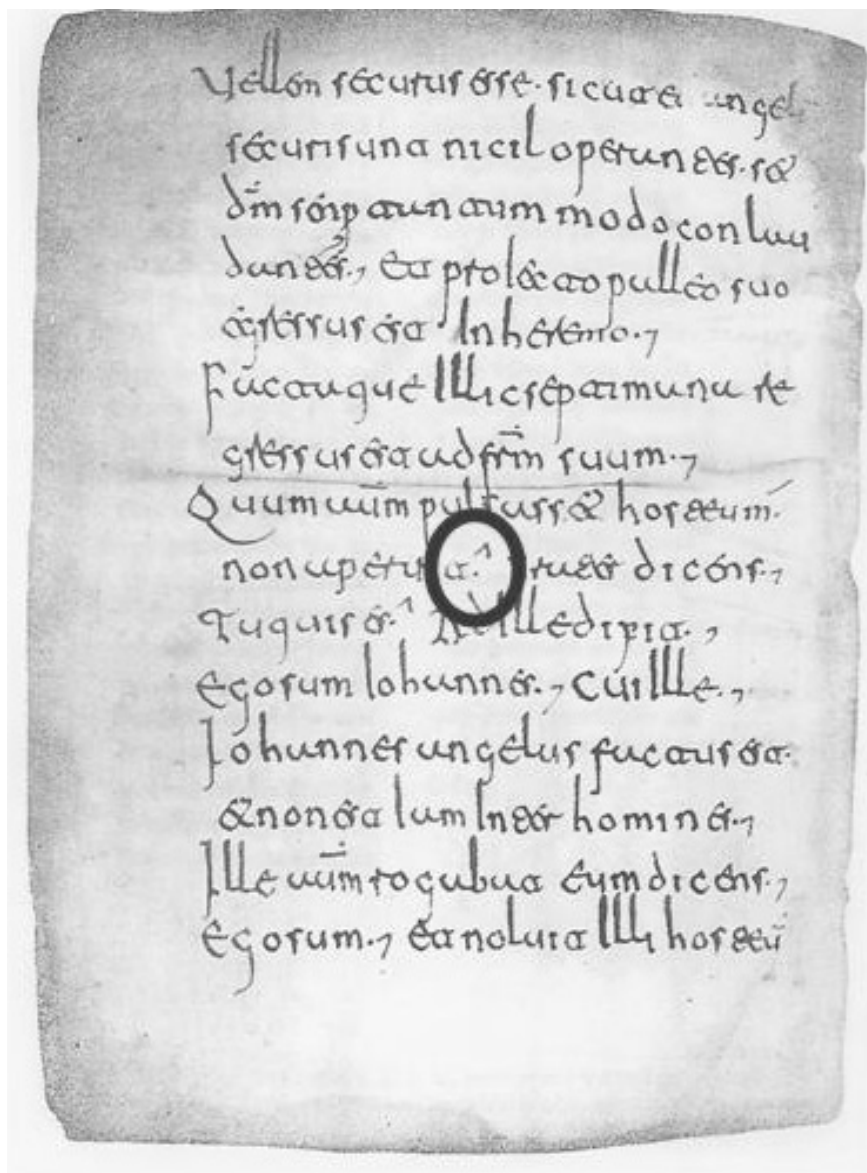 Vellem securus esse· sicut et angeli
securi sunt nicil operantes· s&
dm̄ semp tantum modo conlau
dantes·, Et proiecto palleo suo
egressus est In heremo·,
Factaque Illic septimana re
gressus est ad frm̄ suum·,
Quum uum̄ pulsass& hostium·
non aperuit· dicens·,
Tu quis es· Ad ille dixit·,
Ego sum Iohannes·, Cui Ille·,
Iohannes angelus factus est·
& non est Iam Inter homines·,
Ille uum̄ rogabat eum dicens·,
Ego sum·, Et noluit Illi hostiū